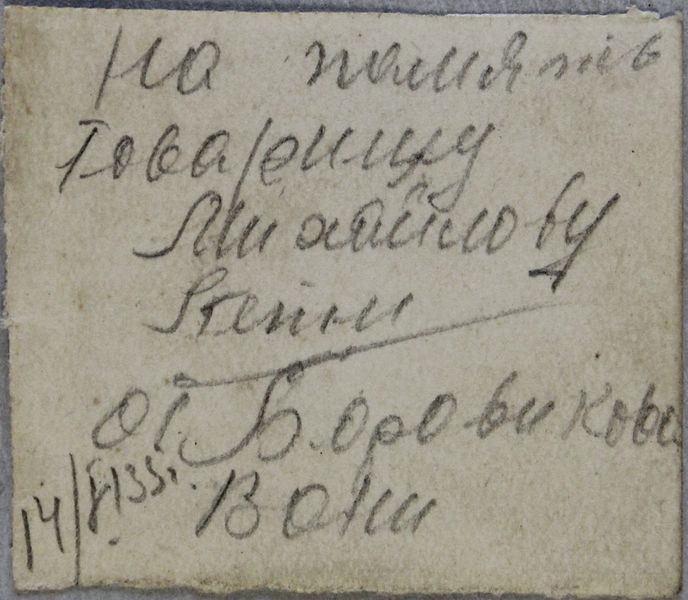 На память
Товарищу
Михайлову
от Боровикова
Вани
14/ 33г.